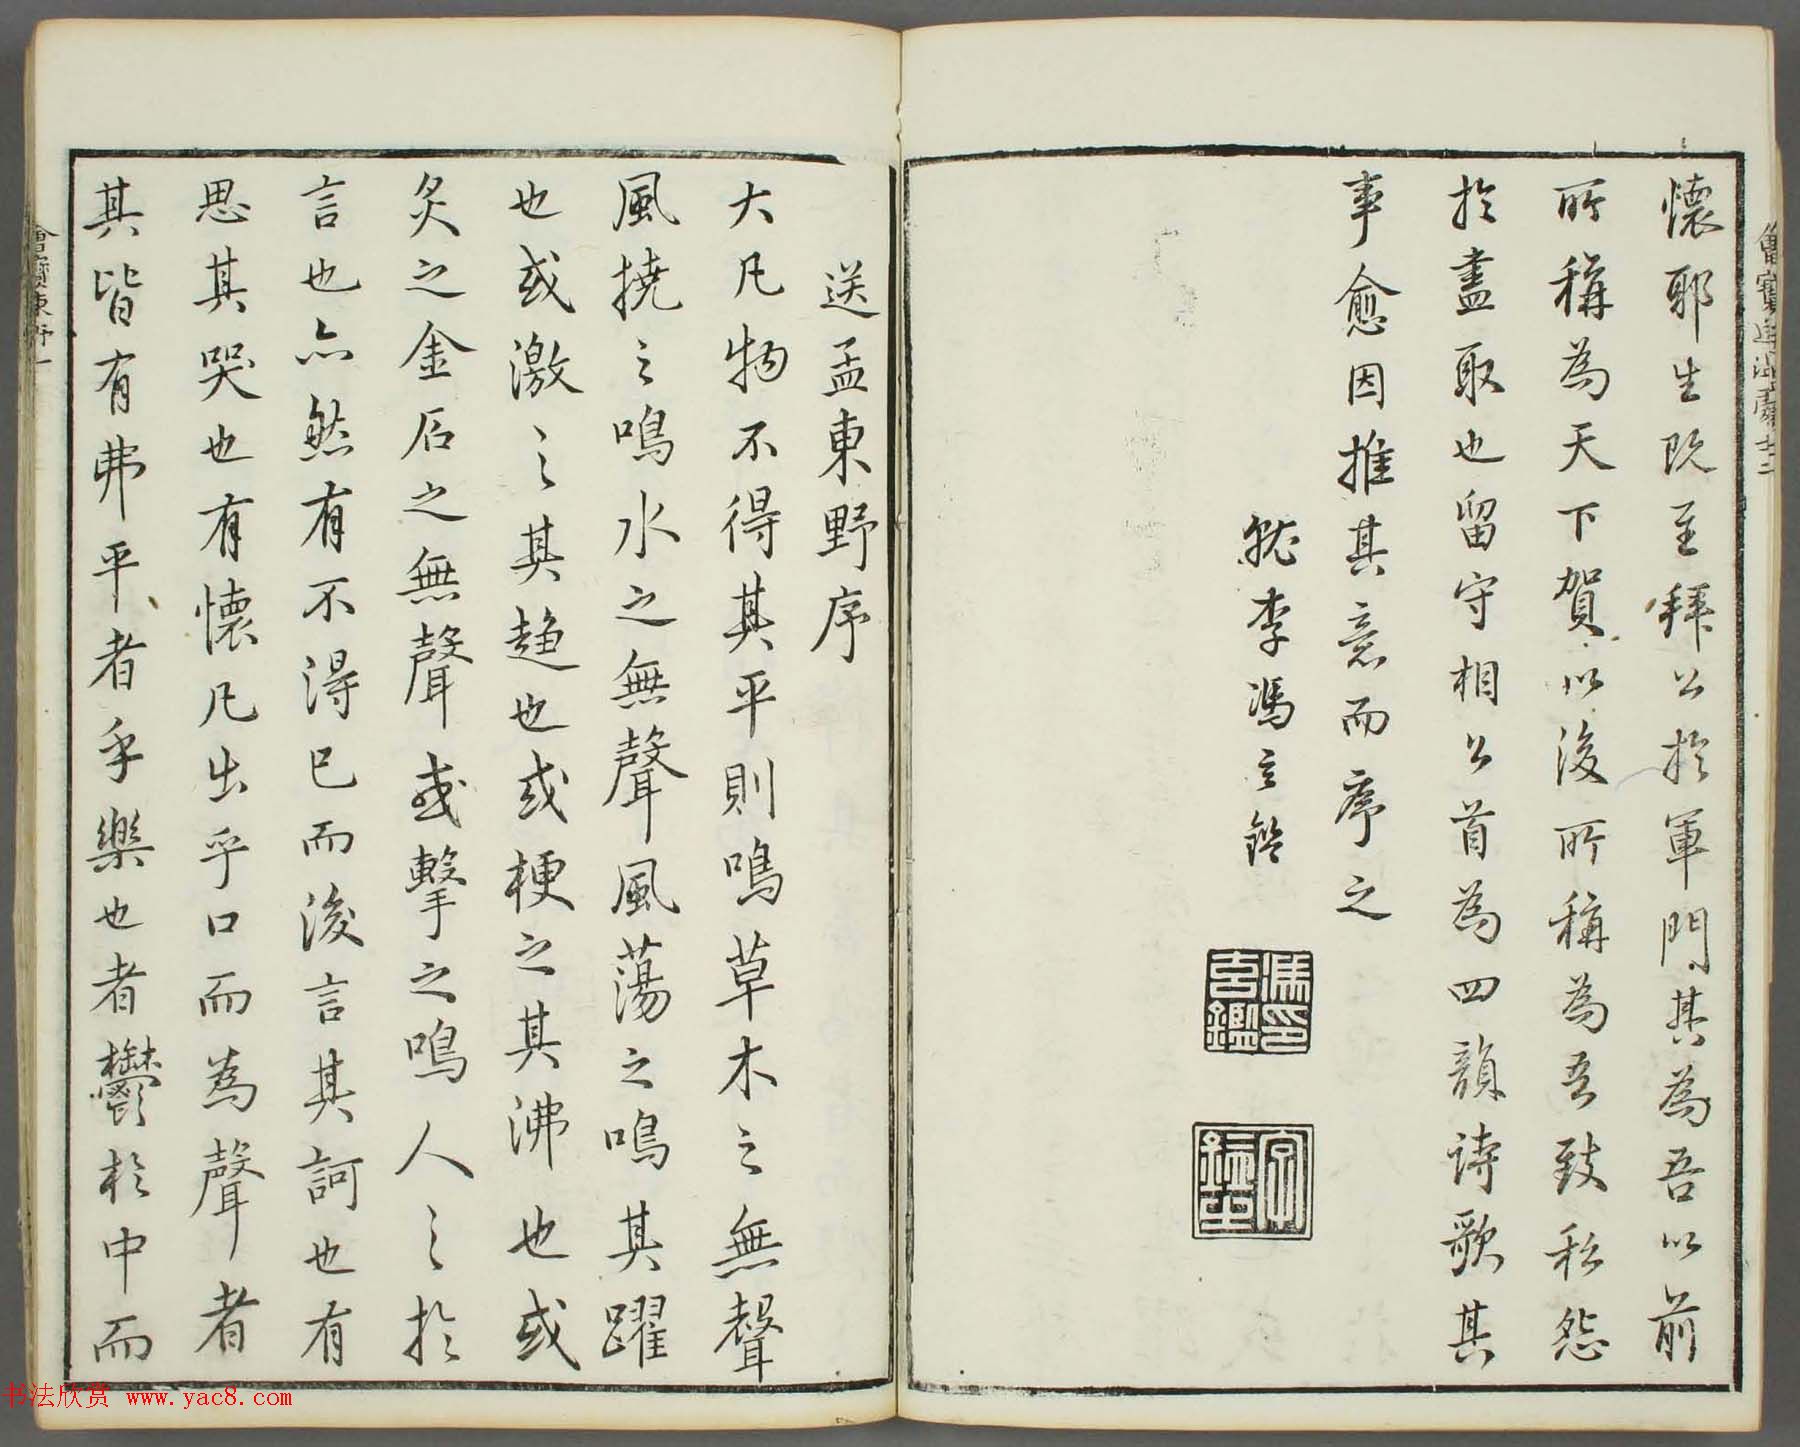 懷耶生既至拜公於軍門其為吾以前
所稱為天下賀以後所稱為吾致私怨
於盡取也留守相公首為四韻詩歌其
事愈因推其意而序之
李馮玄鑑
馮印玄鑑
送孟東野序
大凡物不得其平則鳴草木之無聲
風撓之鳴水之無聲風蕩之鳴其躍
也或激之其趋也或梗之其沸也或
炙之金石之無聲或擊之鳴人之於
言也亦然有不得已而後言其謌也有
思其哭也有懷凡出乎口而為聲者
其皆有弗平者乎樂也者鬱於中而
书法欣赏 www.yac8.com